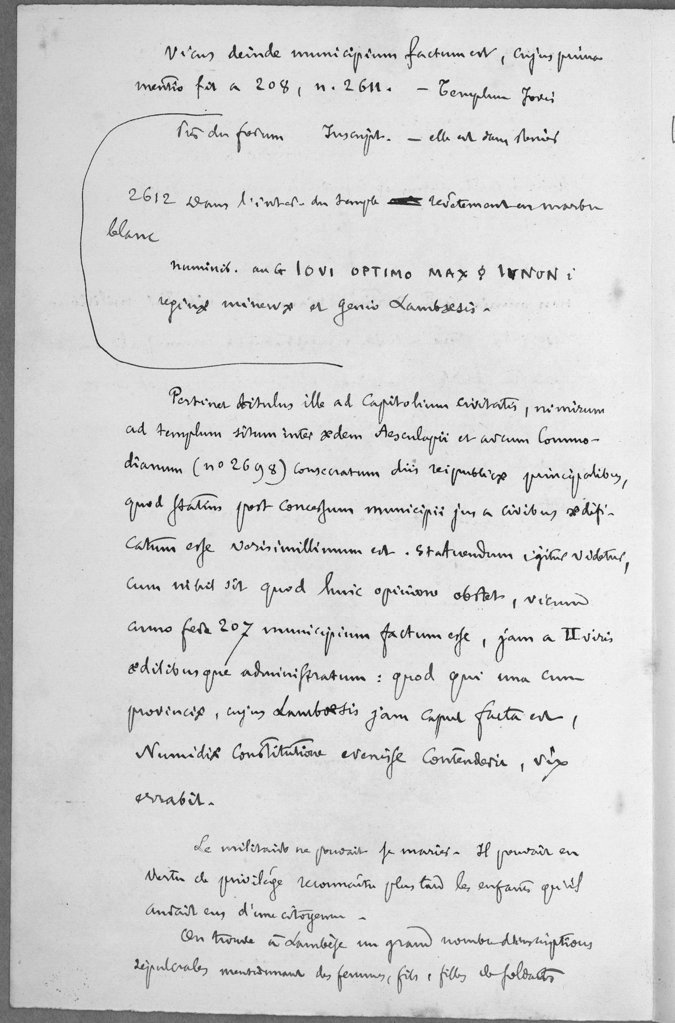 Vicus deinde municipium factum est, cujus prima
mentio fit a 208, n. 2611. — Templum Jovis
Près du forum Inscript. — elle est dans Renier
2612 Dans l'inter. du temple revêtement en marbre
blanc
numinib. auG IOVI OPTIMO MAX & IUNON i
reginæ minervæ et genio Lambæsis.
Pertinet titulus ille ad Capitolium civitatis, nimirum
ad templum situm inter ædem Aesculapii et arcum Commo-
dianum (no 2698) consecratum diis reipublicæ principalibus,
quod statim post concessum municipii jus a civibus ædifi-
catum esse verisimillimum est. Statuendum igitur videtur,
cum nihil sit quod huic opinioni obstet, vicum
anno fere 207 municipium factum esse, jam a II viris
ædilibusque administratum : quod qui una cum
provinciæ, cujus Lambæsis jam caput facta est,
Numidiæ Constitutione evenisse contenderit, vix
errabit.
Le militaire ne pouvait se marier. Il pouvait en
vertu de privilége reconnaître plus tard les enfants qu'il
aurait eus d'une citoyenne.
On trouve à Lambèse un grand nombre d'inscriptions
sépulcrales mentionnant des femmes, fils, filles de soldats